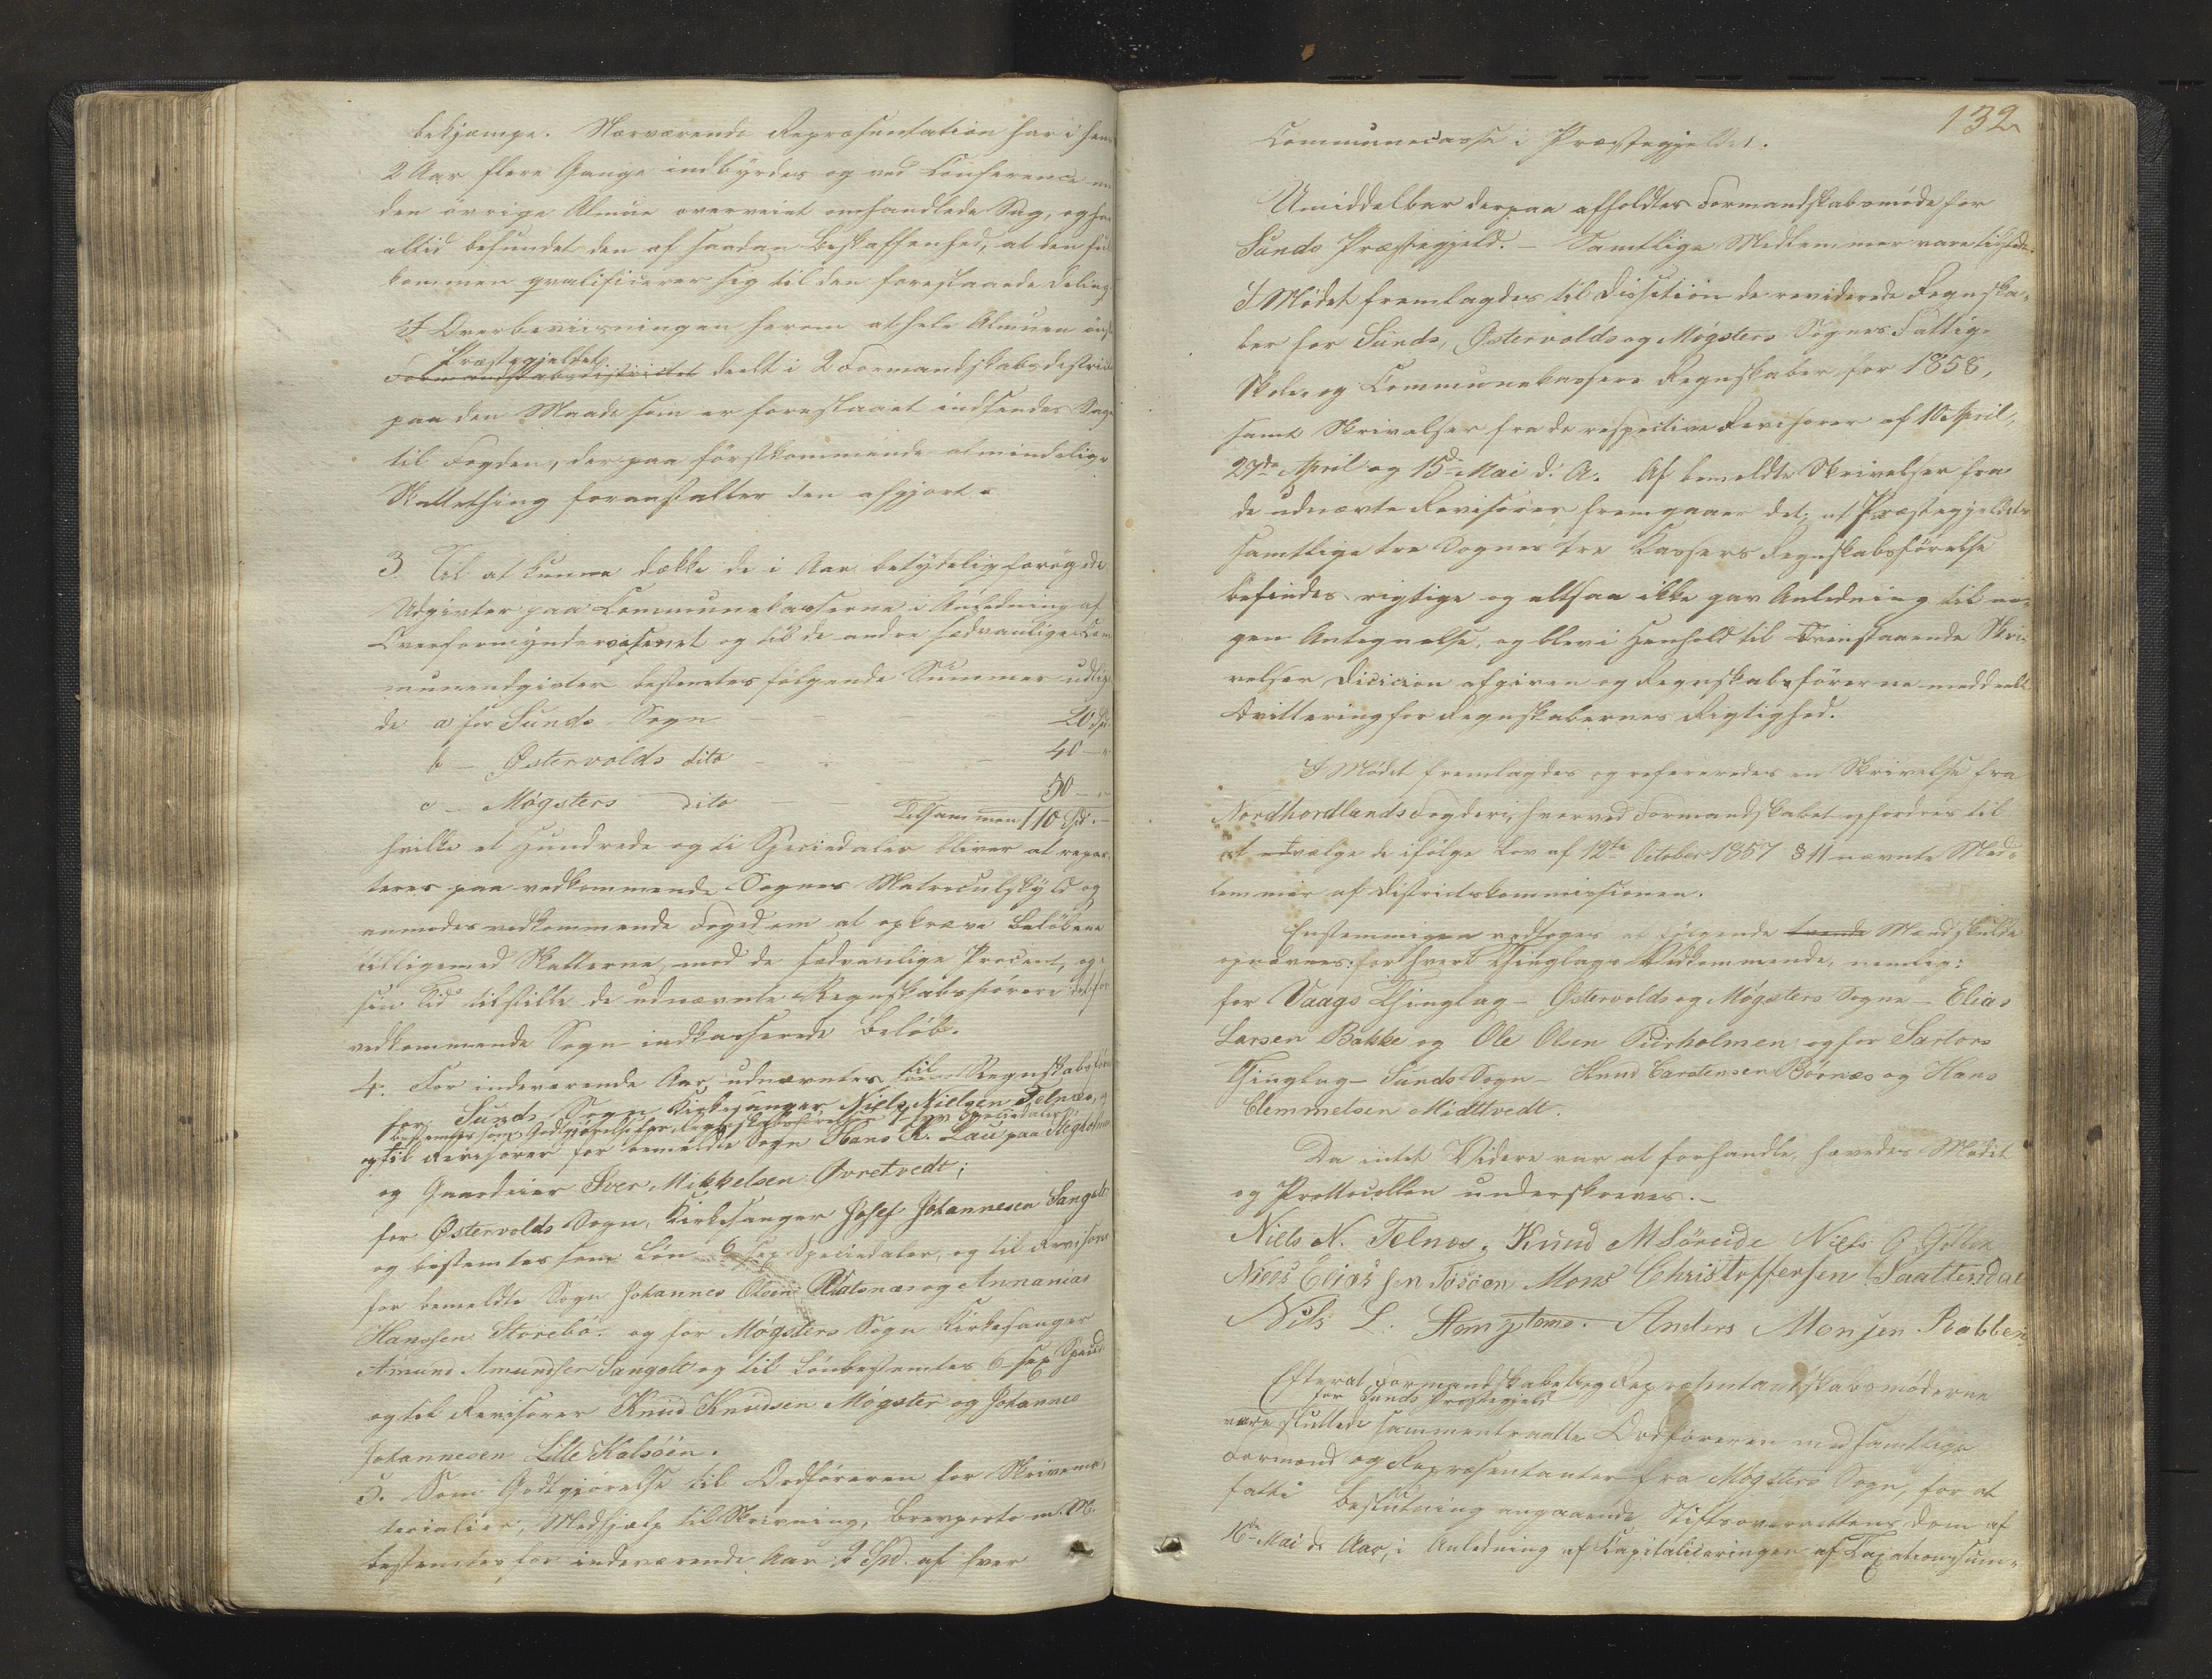 bekjæmpe. Nærværende Repræsentation har i sine
2 Aar flere Gange indbyrdes og ved Conference med
den övrige Almue overveiet omhandlede Sag, og har
altid befundet den af saadan Beskaffenhed, at den fuld
kommen qvalificerer sig til den foreslaaede Deling.
I Overbeviisningen herom at hele Almuen önsker
Præstegjeldet
Formandskabsdistrictet deelt i 2 Formandskabsdistricter
paa den Maade som er foreslaaet indsendes Sagen
til Fogden, der paa förstkommende almindelige
Skattething foranstalter den afgjort.
3. Til at kunne dække de i Aar betydelig forøgede
Udgivter paa Communekasserne i Anledning af
Overformyndervæsenet og til de andre sædvanlige Com
muneudgivter bestemtes fölgende Summer udlig
de a) for Sunds Sogn 20 Spd.
b – Østervolds dito – 40 – „
c – Møgsters dito – 50 – „
Tilsammen 110 Spd. –
hvilke et Hundrede og ti Speciedaler bliver at repar
teres paa vedkommende Sognes Matrikulskyld og
anmodes vedkommende Foged om at opkræve Belöbene
tilligemed Skatterne, med de sædvanlige Procent, og i
sin Tid tilstille de udnævnte Regnskabsförere det for
vedkommende Sogn indkasserede Belöb.
4. For indeværende Aar, udnævntes til Regnskabsförer
for Sunds Sogn Kirkesanger Niels Nielsen Telnæs, og
bestemtes som Godtgjörelse for Regnskabsförelse Speciedaler
og til Revisorer for bemeldte Sogn Hans K. Lau paa Klegholmen
og Gaardeier Iver Mikkelsen Øvretvedt;
for Østervolds Sogn, Kirkesanger Josef Johannesen Sangolt
og bestemtes som Lön 6 sex Speciedaler, og til Revisorer
for bemeldte Sogn Johannes Olsen Rabnæs og Annanias
Hanssen Storebö. og for Møgsters Sogn Kirkesanger
Amund Amundsen Sangolt og til Lön bestemtes 6 sex Specied
og til Revisorer Knud Knudsen Møgster og Johannes
Johannesen Lille Kalsöen.
5. Som Godtgjörelse til Ordföreren for Skrivema
terialier, Medhjælp til Skrivning, Brevporto m. M.
bestemtes for indeværende Aar 2 Spd. af hver
132
Communecasse i Præstegjeldet.
Umiddelbar derpaa afholdtes Formandskabsmöde for
Sunds Præstegjeld. – Samtlige Medlemmer vare tilstede.
I Mödet fremlagdes til Decision de reviderede Regnska-
ber for Sunds, Østervolds og Møgsters Sognes Fattig-
Skole- og Communekassers Regnskaber for 1858,
samt Skrivelser fra de respective Revisorer af 10 April,
27de April og 15de Mai d. A. Af bemeldte Skrivelser fra
de udnævnte Revisorer fremgaaer det, at Præstegjeldets
samtlige tre Sognes tre Kassers Regnskabsförelse
befindes rigtige og altsaa ikke gav Anledning til no-
gen Antegnelse, og blev i Henhold til Ovenstaaende Skri-
velser Dicision afgiven og Regnskabsförerne meddeelt
Qvittering for Regnskabernes Rigtighed.
I Mödet fremlagdes og refereredes en Skrivelse fra
Nordhordlands Fogderi, hvorved Formandskabet opfordres til
at udvælge de ifölge Lov af 12te October 1857 § 11 nævnte Med-
lemmer af Districtskommissionen.
Enstemmigen vedtoges at fölgende tvende Mænd skulde
opnævnes: for hvert Thinglags Vedkommende, nemlig:
for Vaags Thinglag – Østervolds og Møgsters Sogne – Elias
Larsen Bakke og Ole Olsen Purholmen og for Sartors
Thinglag – Sunds Sogn – Knud Carstensen Børnæs og Hans
Clemmetsen Midttvedt.
Da intet Videre var at forhandle, hævedes Mödet
og Prottocollen underskreves. –
Niels N. Telnæs. Knud M Söreide Niels
Niels Eliassen Mons Christoffersen Saattendal
Nils L. Anders Monsen Rabben
Efterat Formandskabets og Repræsentantskabsmöderne
for Sunds Præstegjeld
vare sluttede sammentraadte Ordföreren med samtlige
Formænd og Repræsentanter fra Møgsters Sogn, for at
fatte Beslutning angaaende Stiftsoverrettens Dom af
16de Mai d. Aar, i Anledning af Kapitaliceringen af Taxationssum-